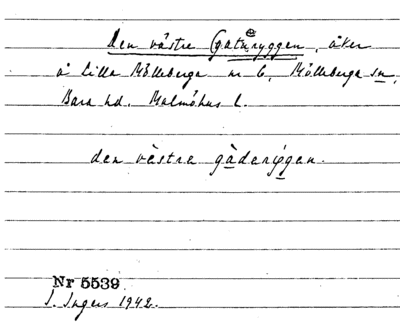 den västre Gaturyggen, åker
å Lilla Mölleberga nr 6, Mölleberga sn,
Bara hd. Malmöhus l.
den vèstre gàderýgen.
Nr 5539
I. Ingers 1942.